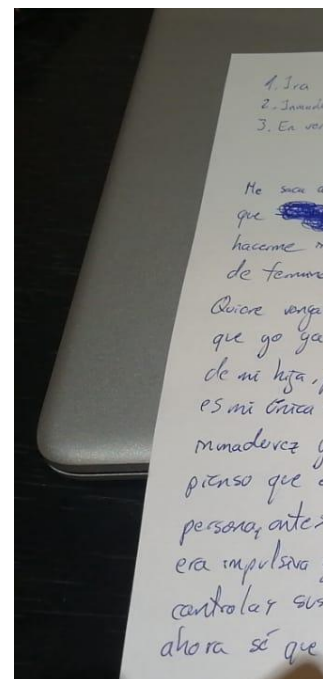 1. Ira
2. Inmadu
3. En ven
Me saca d
que
hacerme m
de femin
Quiere venga
que yo ya
de mi hija,
es mi única
inmadurez y
pienso que
persona, antes
era impulsiva
controlar sus
ahora sé que